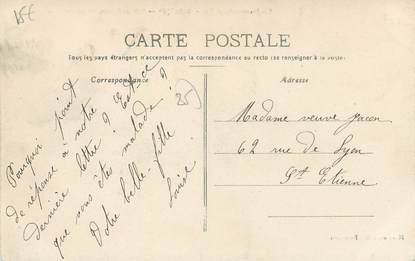 15€
CARTE POSTALE
Tous les pays étrangers n'acceptent pas la correspondance au recto (se renseigner à la poste).
Correspondance
Adresse
25)
Pourquoi point
de réponse à notre
dernière lettre ? Est-ce
que vous êtes malade ?
Votre belle-fille
Louise
Madame veuve
62 rue de Lyon
St Etienne